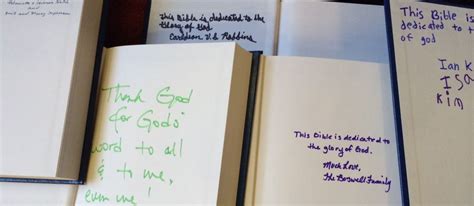 This Bible is dedicated to the
Glory of God
Thank God
for Gods'
word to all
& to me,
even me!
This Bible is dedicated to
the glory of God.
Much Love,
The Boswell Family
This Bible is
dedicated to t
of god
Ian K
Isa
Kim